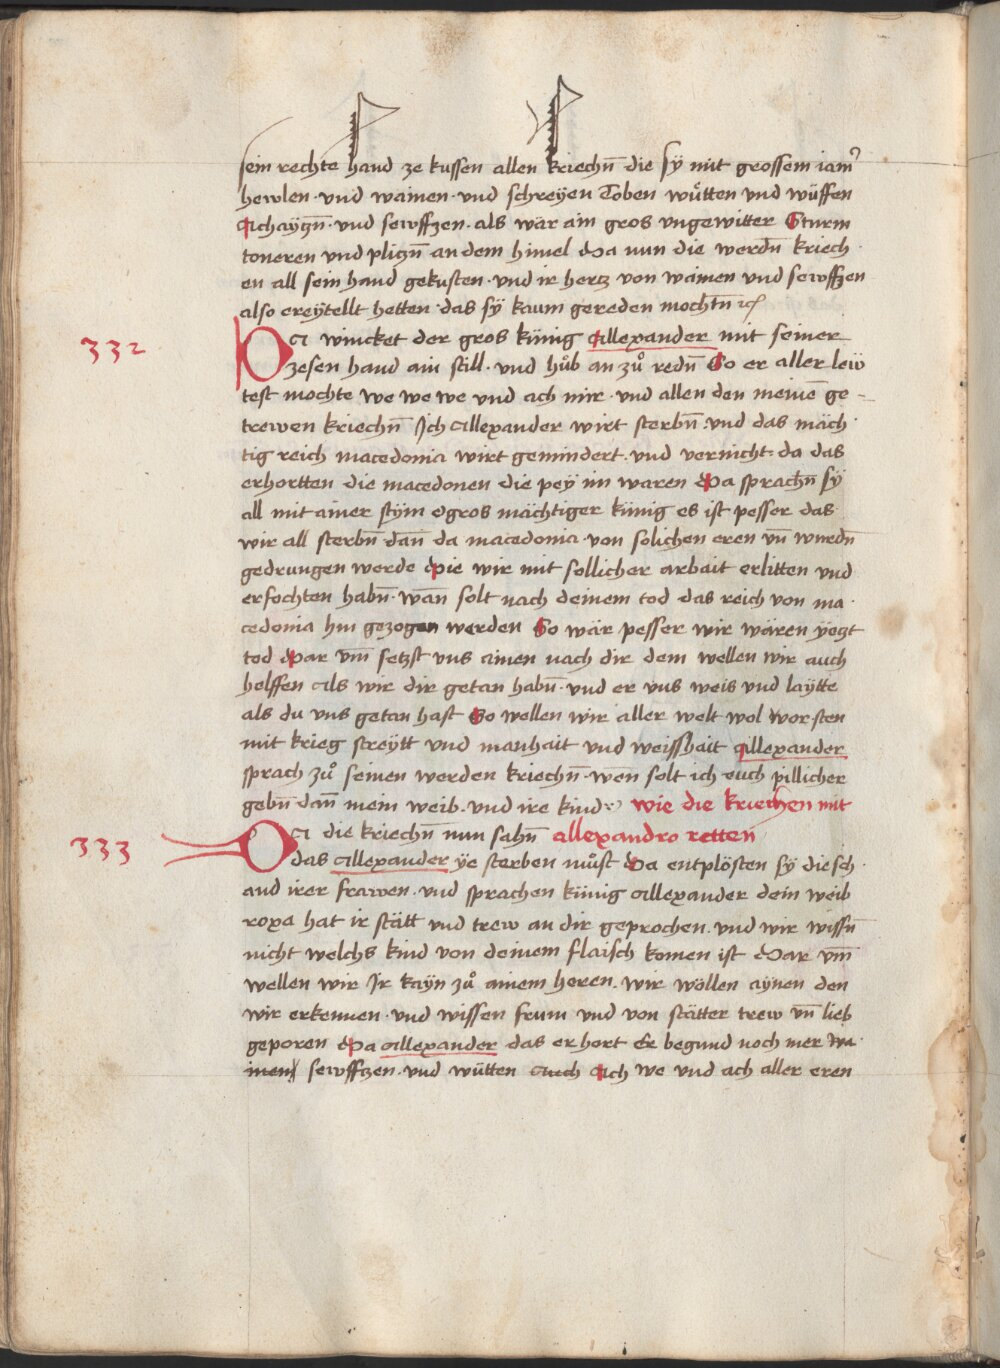 sein rechte hand ze kussen allen kriechn̄ die sÿ mit grossem iam̄
hewlen · vnd wainen · vnd schreÿen Toben wu̇tten vnd wüffen
Achaÿgn̄ · vnd sewffzen · als wär ain gros vngewitter Sturm
toneren vnd plign̄ an dem himel Da nun die werdn̄ kriech
en all sein hand gekusten · vnd ir hertz von wainen vnd sewffzen
also ereÿtellt hetten · das sÿ kaum gereden mochtn̄ ꝛcͣ
332
Da wincket der gros künig Allexander mit seiner
zesen hand ain still · vnd hůb an zů redn̄ So er aller leü
test mochte we we we vnd ach mir · vnd allen den meinē ge-
trewen kriechn̄ Ich Allexander wirt sterbn̄ · vnd das mäch
tig reich macedonia wirt gemindert · vnd vernicht · da das
erhortten die macedonen die peÿ im waren Da sprachn̄ sÿ
all mit ainer stÿm O gros mächtiger künig es ist pesser das
wir all sterbn̄ dan̄ da macedonia · von solichen eren vn̄ wurdn̄
gedrungen werde Die wir mit sollicher arbait erlitten vnd
erfochten habn̄ · wan̄ solt nach deinem tod das reich von ma
cedonia hin gezogen werden So wär pesser wir wären ÿegt
tod Dar vm̄ setzst vns ainen nach dir dem wellen wir auch
helffen als wir dir getan habn̄ · vnd er vns weis vnd laÿtte
als du vns getan hast So wellen wir aller welt wol vorsten
mit krieg streÿtt vnd manhait vnd weisshait Allexander
sprach zů seinen werden kriechn̄ · wen̄ solt ich euch pillicher
gebn̄ dan̄ mein weib · vnd ire kind wie die kriechen mit
333
Da die kriechn̄ nun sahn̄ allexandro retten
das Allexander ÿe sterben můst Da entplösten sÿ die sch
and irer frawen · vnd sprachen künig Allexander dein weib
roxa hat ir stätt vnd trew an dir geprochen · vnd wir wissn̄
nicht welchs kind von deinem flaisch komen ist Dar vm̄
wellen wir Ir kaÿn zů ainem heren · wir wöllen aÿnen den
wir erkennen · vnd wissen frum vnd von stätter trew vn̄ lieb
geporen Da Allexander das erhort Er begund noch mer wa
inen sewffzen · vnd wütten auch Ach we vnd ach aller eren